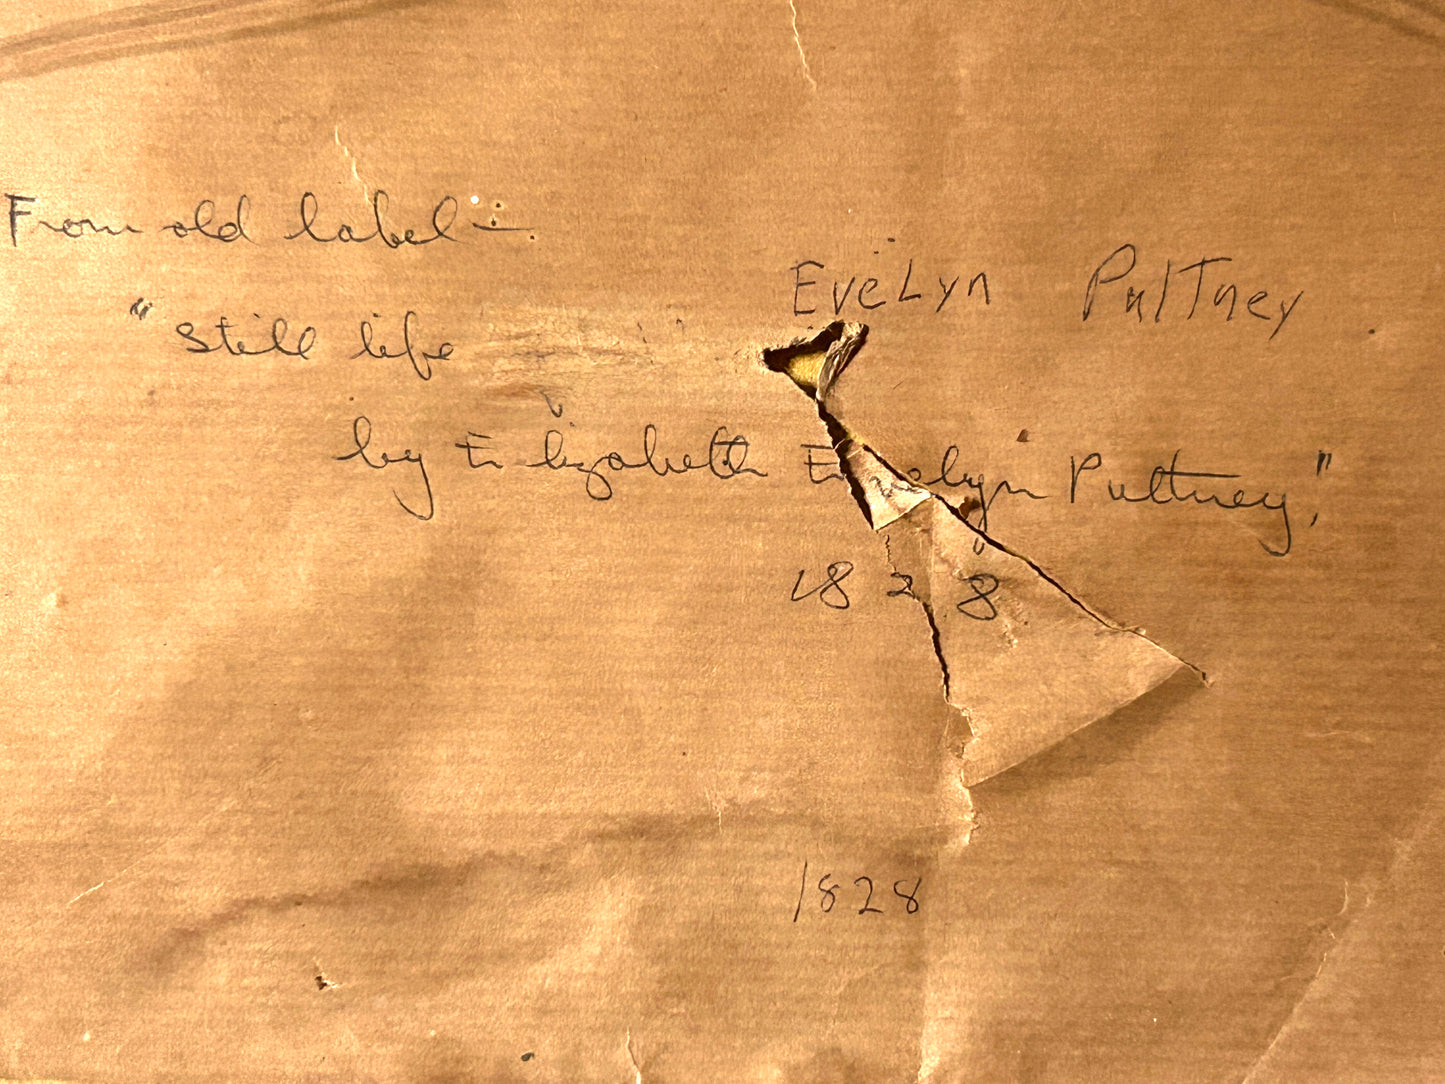 From old label -:
Evelyn Pultney
"Still life
by Elizabeth Evelyn Pultney."
1828
1828